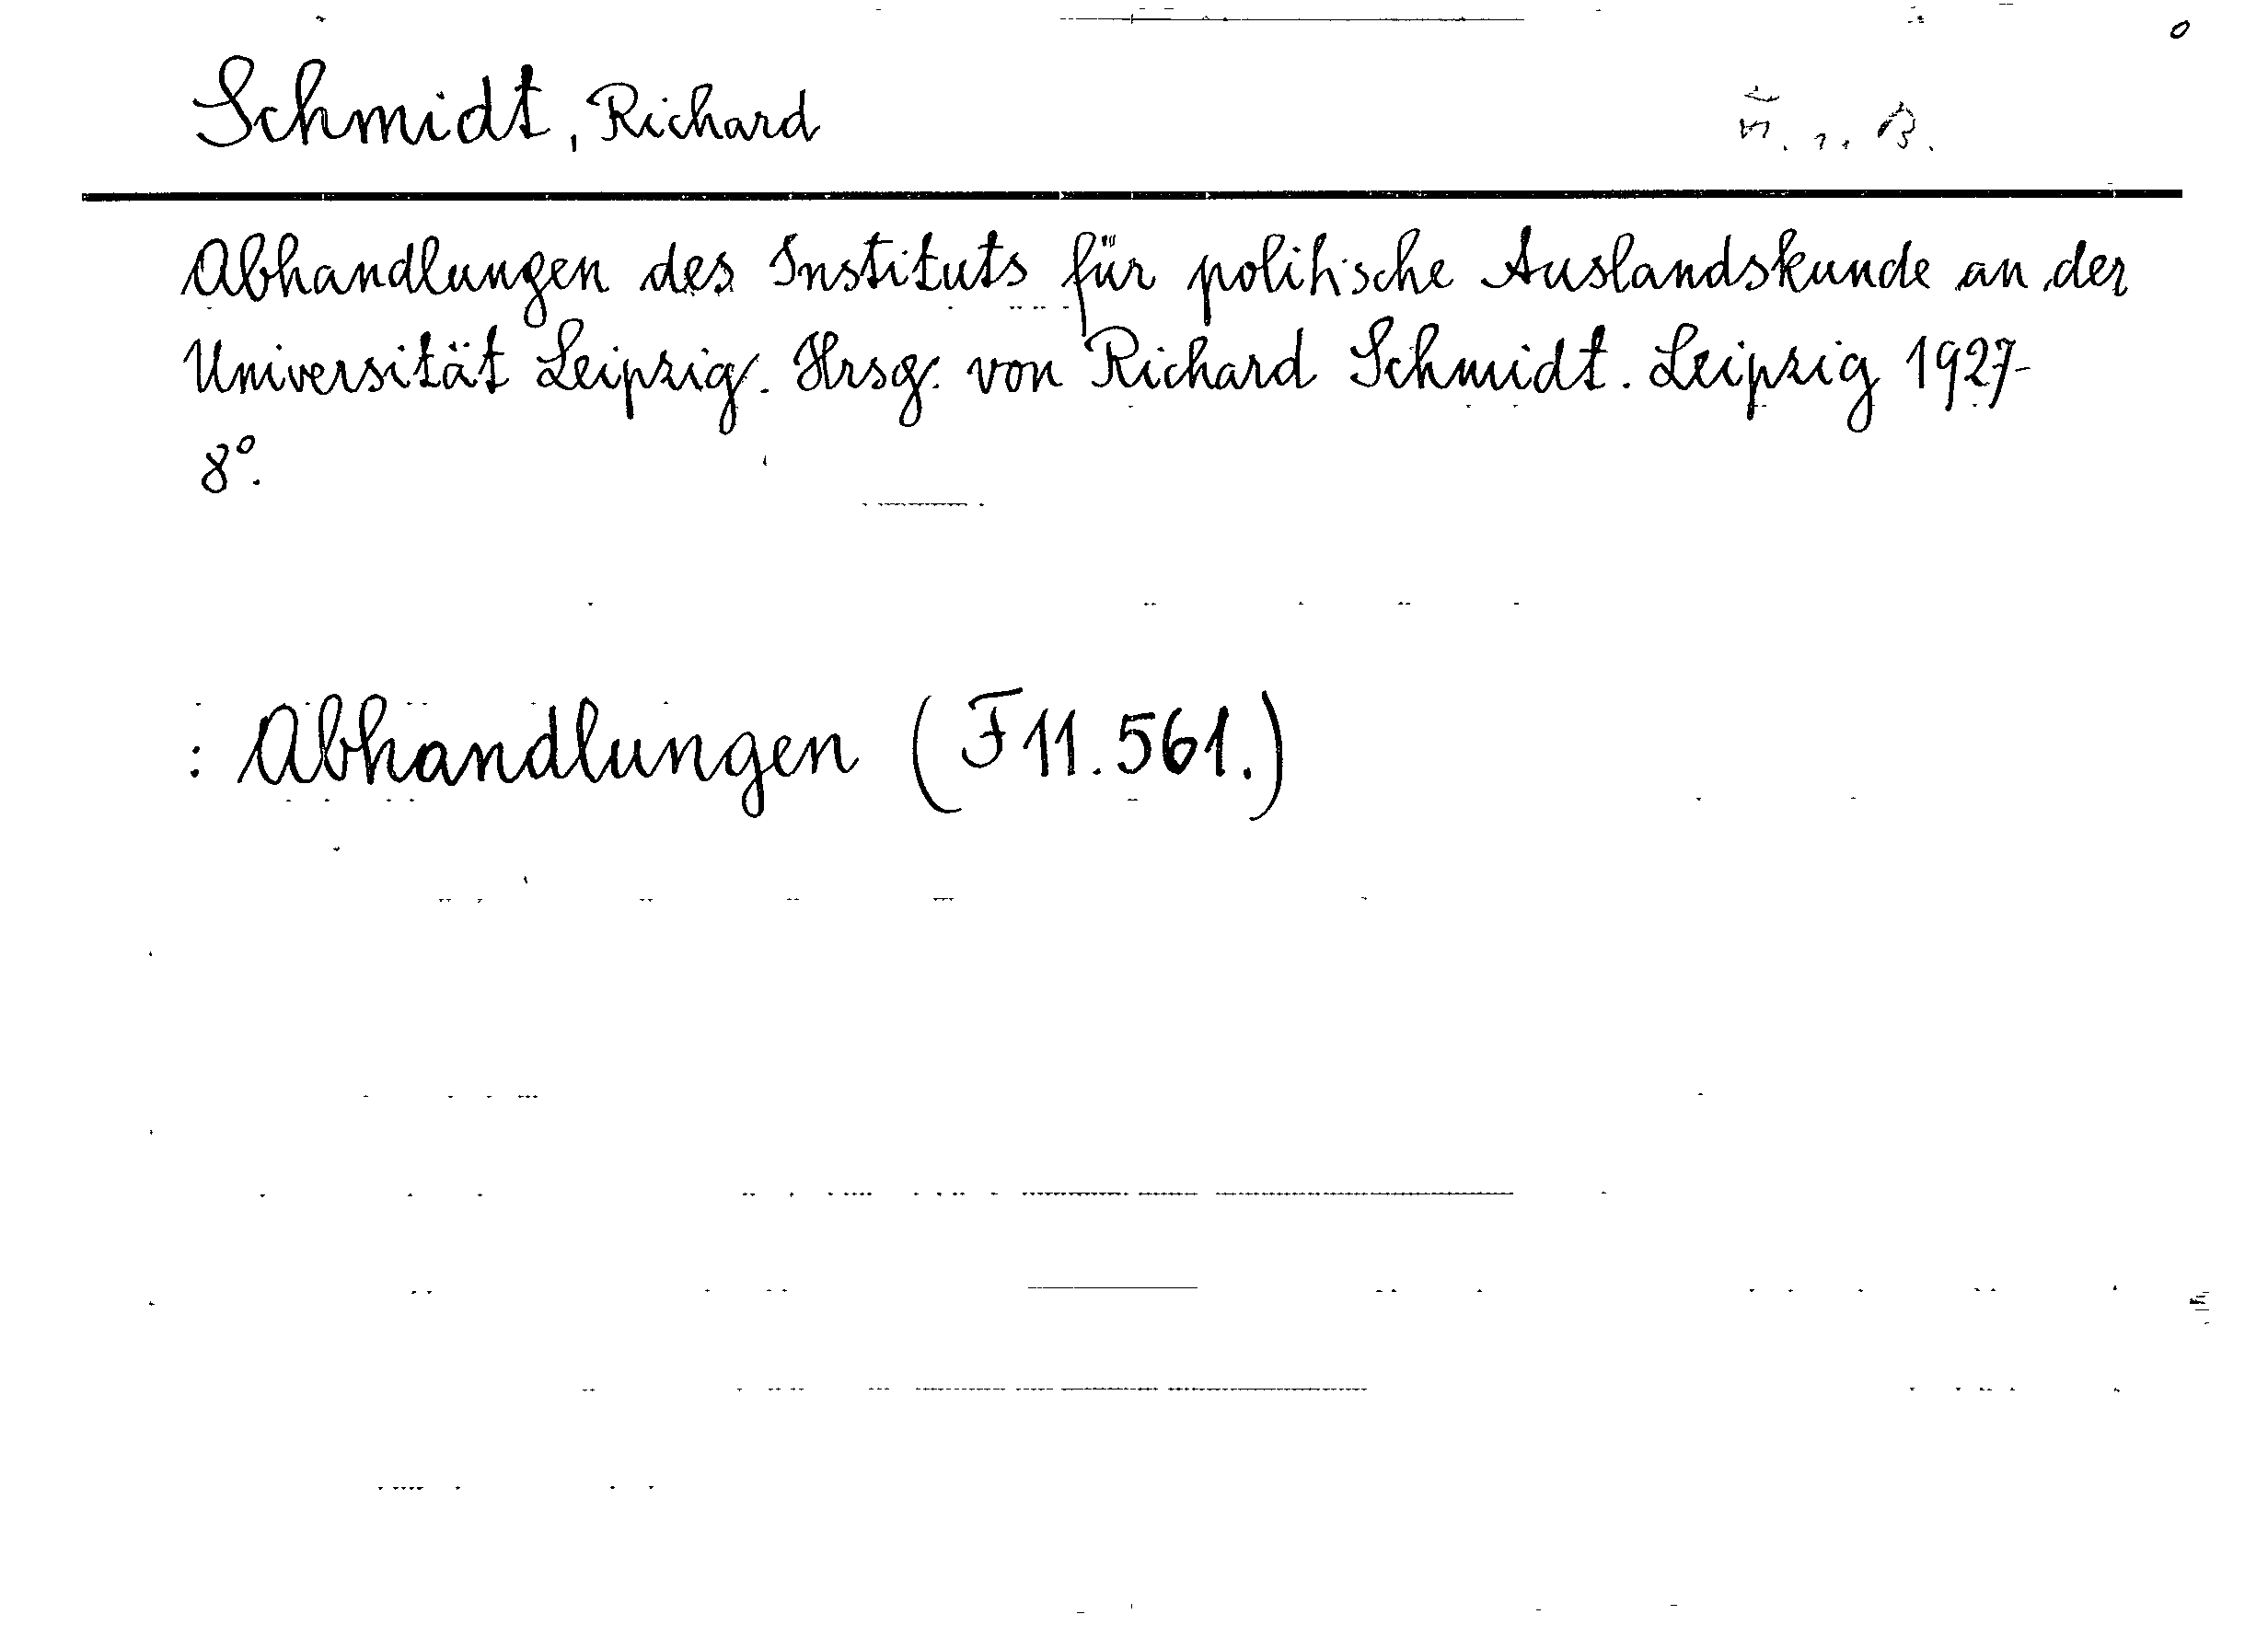 Schmidt, Richard
Abhandlungen des Instituts für politische Auslandskunde an der
Universität Leipzig. Hrsg. von Richard Schmidt. Leipzig 1927-
8°.
: Abhandlungen (F 11.561.)